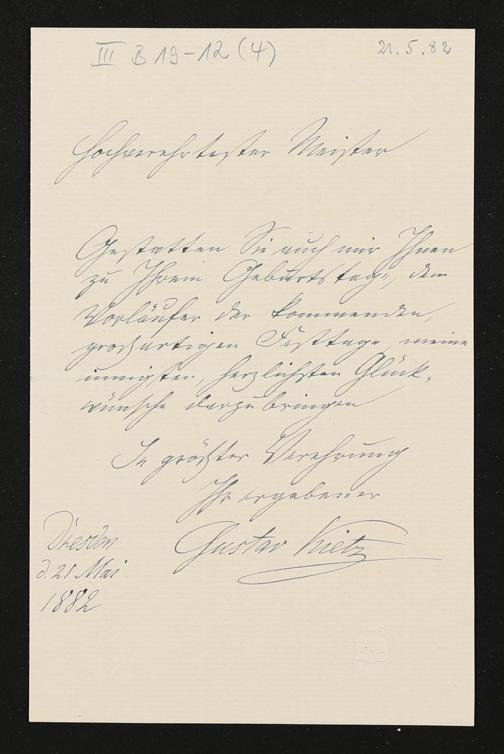 III B 19-12 (4)
21.5.82
Hochverehrtester Meister
Gestatten Sie auch mir Ihnen
zu Ihrem Geburtstage, dem
Vorläufer der kommenden,
großartigen Festtage, meine
innigsten, herzlichsten Glück-
wünsche darzubringen
In größter Verehrung
Ihr ergebener
Gustav Kietz
Dresden
d. 21 Mai
1882